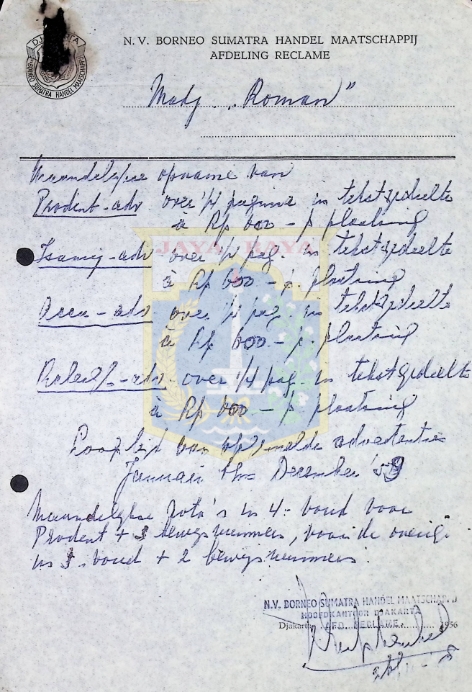 DJAKARTA
BORNEO SUMATRA HANDEL MAATSCHAPPIJ
N. V. BORNEO SUMATRA HANDEL MAATSCHAPPIJ
AFDELING RECLAME
Madj. „Roman”
Maandelijkse opname van
Prodent-adv over 1/4 pagina in tekstgedeelte
à Rp 600 – p. plaatsing
adv over 1/4 pag. in tekstgedeelte
à Rp 600 – p. plaatsing
adv over 1/4 pag. in tekstgedeelte
à Rp 600 – p. plaatsing
adv. over 1/4 pag. in tekstgedeelte
à Rp 600 – p. plaatsing
Looptijd van opgemelde advertenties
Januari t/m December
Maandelijkse nota's in 4-voud voor
Prodent + 3 bewijsnummers, voor de overige
in 3-voud + 2 bewijsnummers.
JAYA RAYA
N.V. BORNEO SUMATRA HANDEL MAATSCHAPPIJ
HOOFDKANTOOR DJAKARTA
AFD. RECLAME
Djakarta, 1956